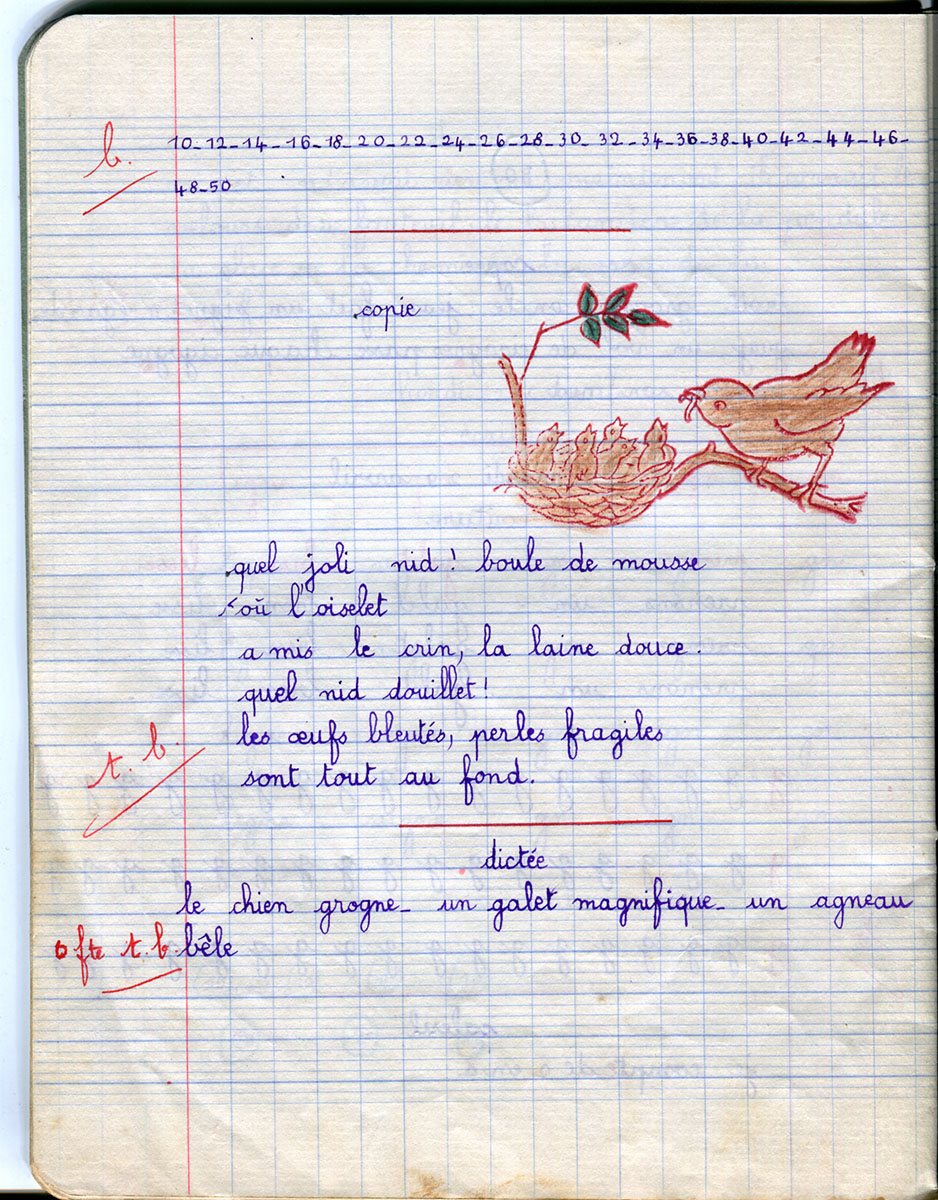 b.
10_12_14_16_18_20_22_24_26_28_30_32_34_36_38_40_42_44_46_
48_50
copie
quel joli nid ! boule de mousse
où l'oiselet
a mis le crin, la laine douce.
quel nid douillet !
les œufs bleutés, perles fragiles
t. b.
sont tout au fond.
dictée
le chien grogne_ un galet magnifique_ un agneau
0 fte t. b. bêle